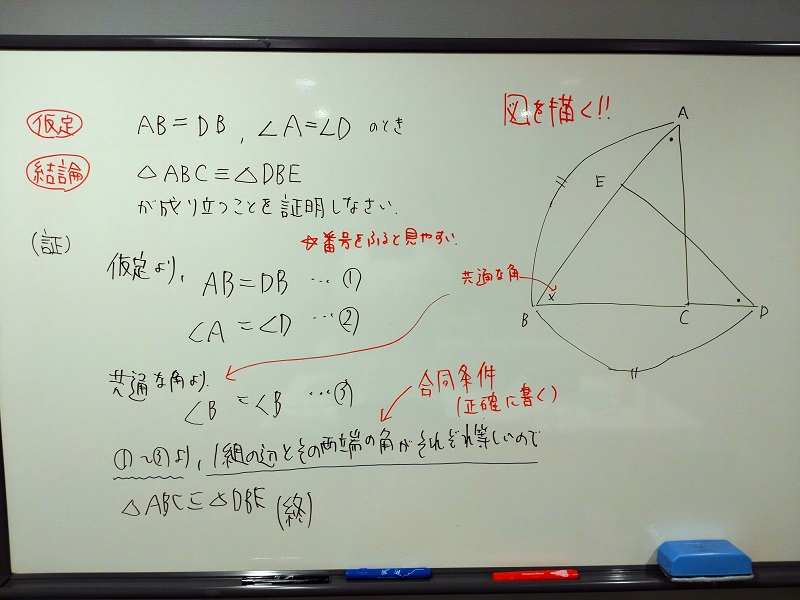 仮定 AB=DB, ∠A=∠D のとき
結論 △ABC≡△DBE
が成り立つことを証明しなさい.
(証)
☆番号をふると見やすい.
仮定より,
AB=DB …①
∠A=∠D …②
共通な角より.
∠B=∠B …③
合同条件
(正確に書く)
①~③より, 1組の辺とその両端の角がそれぞれ等しいので
△ABC≡△DBE (終)
図を描く!!
A
E
共通な角
x
B
C
D